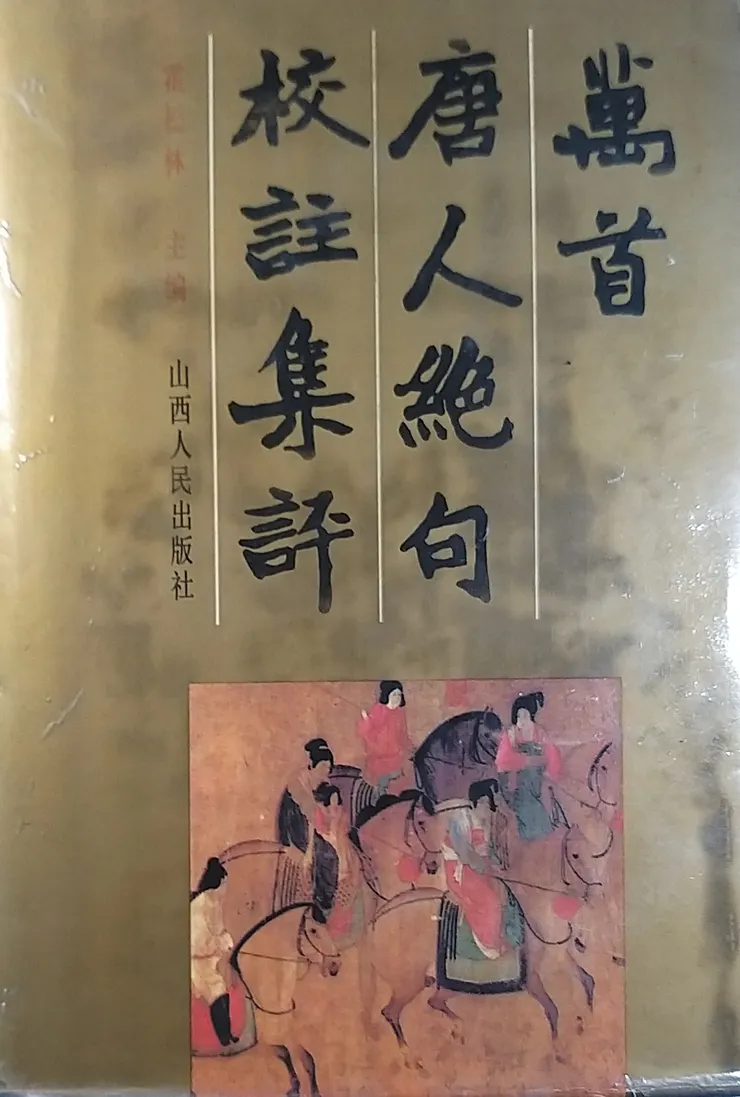 萬首
唐人絶句
校註集評
霍松林 主编
山西人民出版社